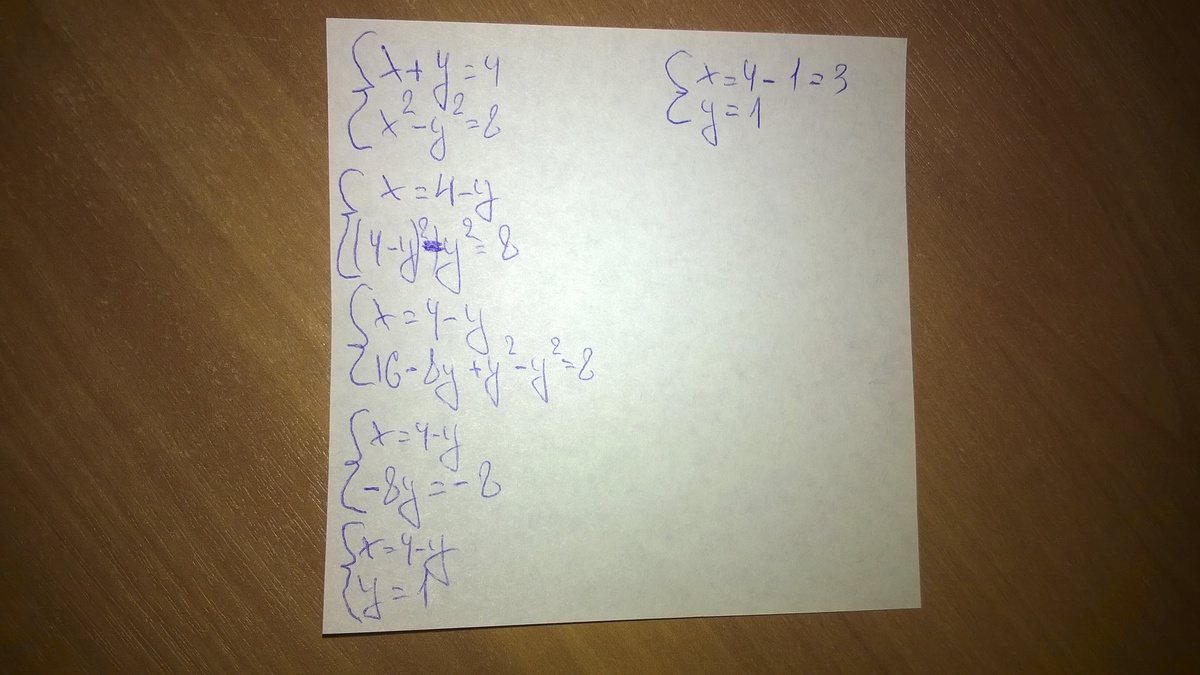 x+y=4
x²-y²=8
x=4-y
(4-y)²-y²=8
x=4-y
16-8y+y²-y²=8
x=4-y
-8y=-8
x=4-y
y=1
x=4-1=3
y=1